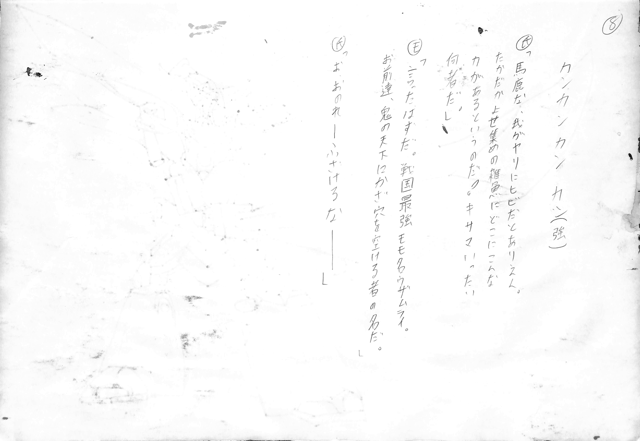 ⑧
カンカンカン カン(強)
「馬鹿な、我がヤリにヒビだとありえん。
たかだかよせ集めの雑魚にどこにこんな
力があるというのだ。キサマいったい
何者だ」
㋲「言ったはずだ。戦国最強モモタロウザムライ。
お前達、鬼の天下にかざ穴を空ける者の名だ。」
「おおのれーふざけるな———」